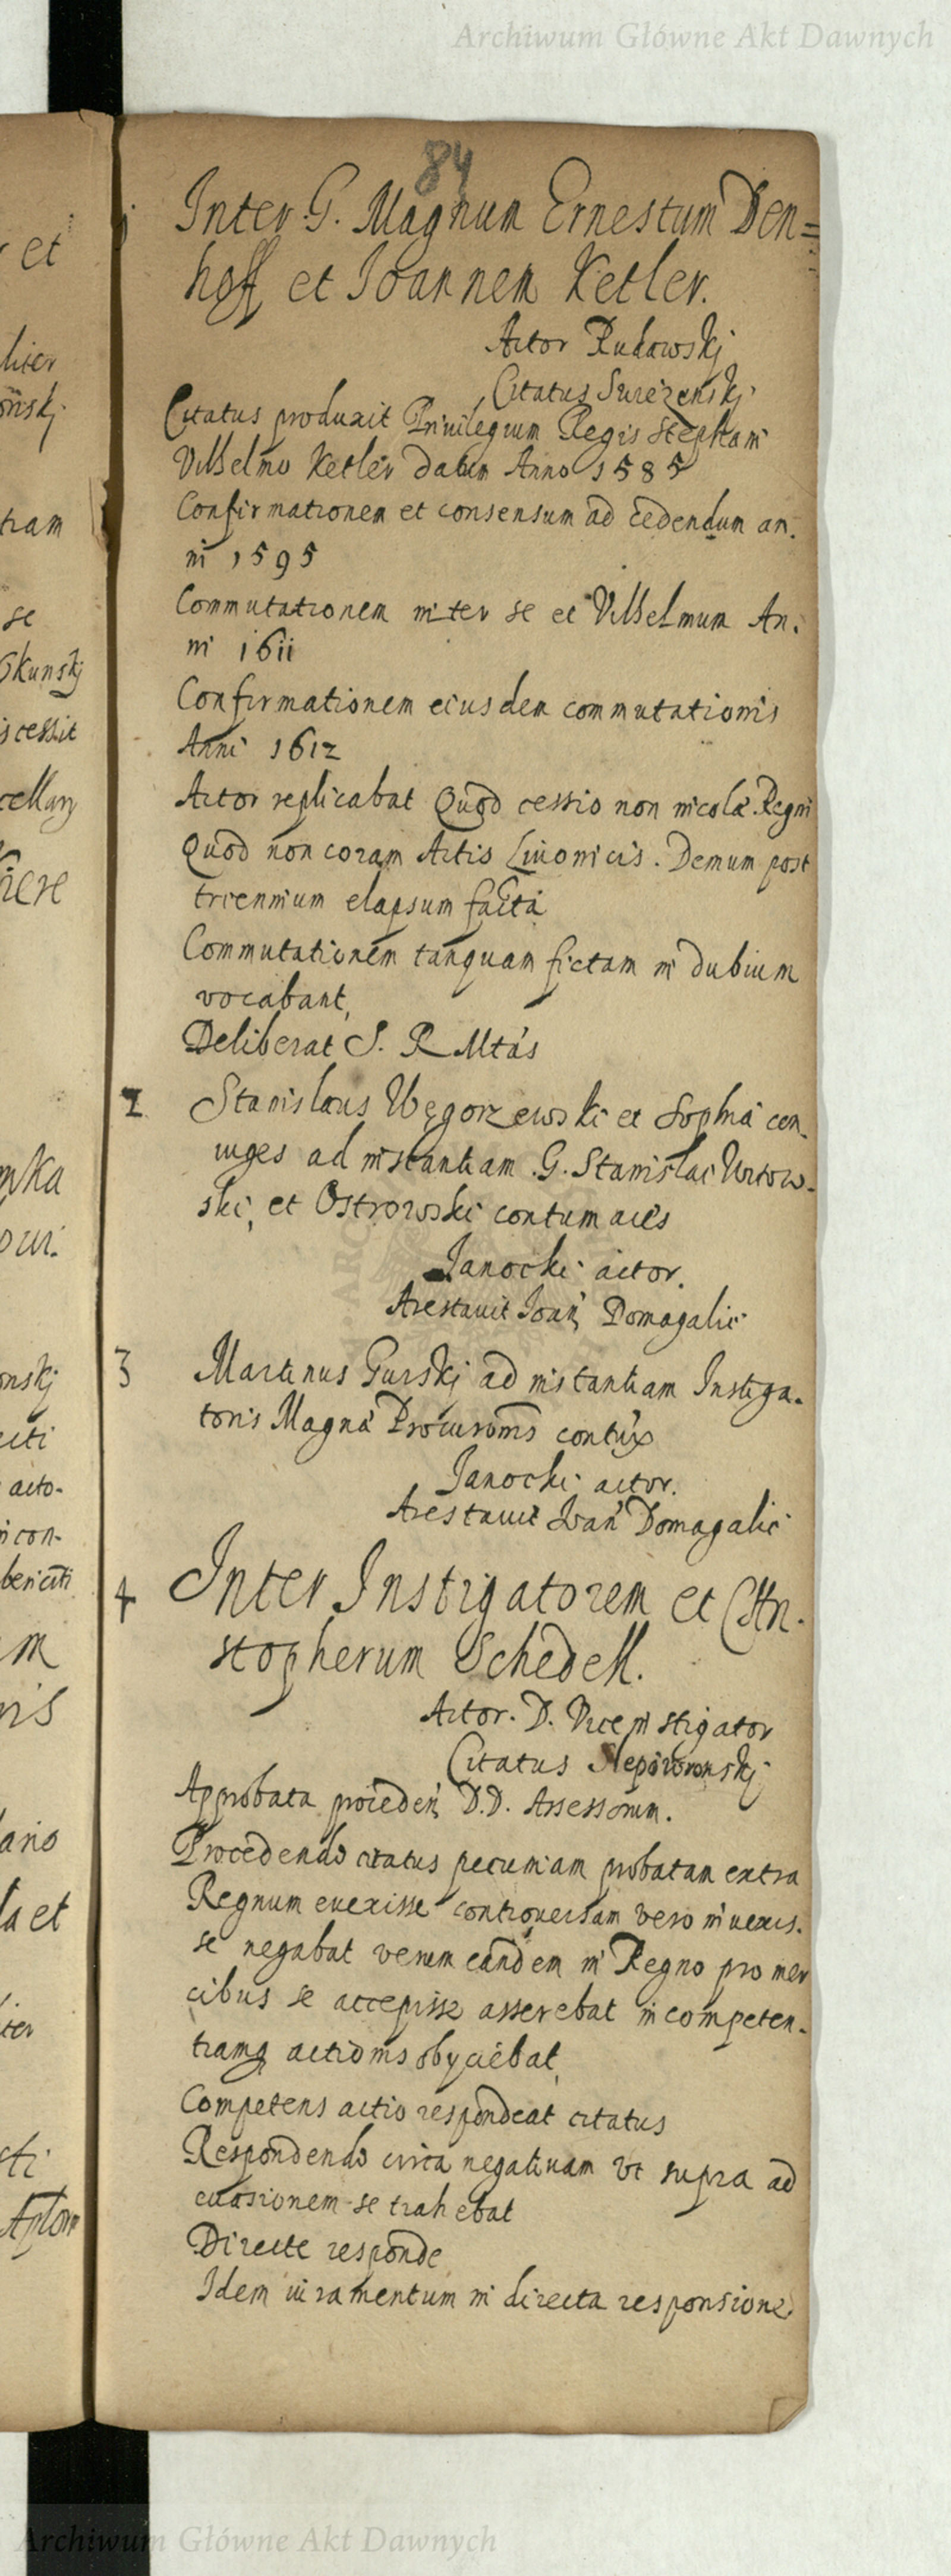 Archiwum Główne Akt Dawnych
84
1 Inter G. Magnum Ernestum Den=
hoff et Joannem Ketler.
Actor Rudowskj
Citatus Surezenskj
Citatus produxit Priuilegium Regis Stephani
Vilhelmo Ketler datum Anno 1585
Confirmationem et consensum ad cedendum an.
ni 1595
Commutationem inter se et Vilhelmum An.
ni 1611
Confirmationem eiusdem commutationis
Anni 1612
Actor replicabat Quod cessio non incolæ Regni
Quod non coram Actis Liuonicis. Demum post
triennium elapsum facta
Commutationem tanquam fictam in dubium
vocabant,
Deliberat S. R Mtas
2 Stanislaus Węgorzewski et Sophia con.
iuges ad instantiam G. Stanislai
ski, et Ostrowski contumaces
Janocki actor.
Arestauit Joan Domagalic
3 Martinus Gurskj ad instantiam Instiga.
toris Magna contux
Janocki actor.
Arestauit Ioan Domagalic
4 Inter Instigatorem et Chri.
stopherum Schedell.
Actor. D. Viceinstigator
Citatus
Approbata proceden D.D. Assessorum.
Procedendo citatus pecuniam probatam extra
Regnum euexisse controuersam vero inuexis.
se negabat verum eandem in Regno pro mer
cibus se accepisse asserebat incompeten.
tiamq actionis obyciebat,
Competens actio respondeat citatus
Respondendo circa negatiuam vt supra ad
euasionem se trahebat
Directe responde
Idem iuramentum in directa responsione
r et
liter
onskj
tiam
se
Skunskj
is cessit
cellary
onskj
acto-
in con-
m
ris
la et
sti
Archiwum Główne Akt Dawnych